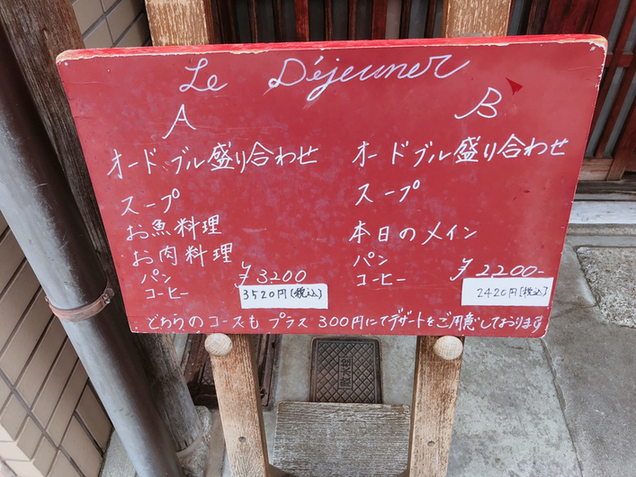 Le Déjeuner
A
オードブル盛り合わせ
スープ
お魚料理
お肉料理
パン
コーヒー
¥3200
3520円(税込)
B
オードブル盛り合わせ
スープ
本日のメイン
パン
コーヒー
¥2200-
2420円(税込)
どちらのコースも プラス 300円にてデザートをご用意しております